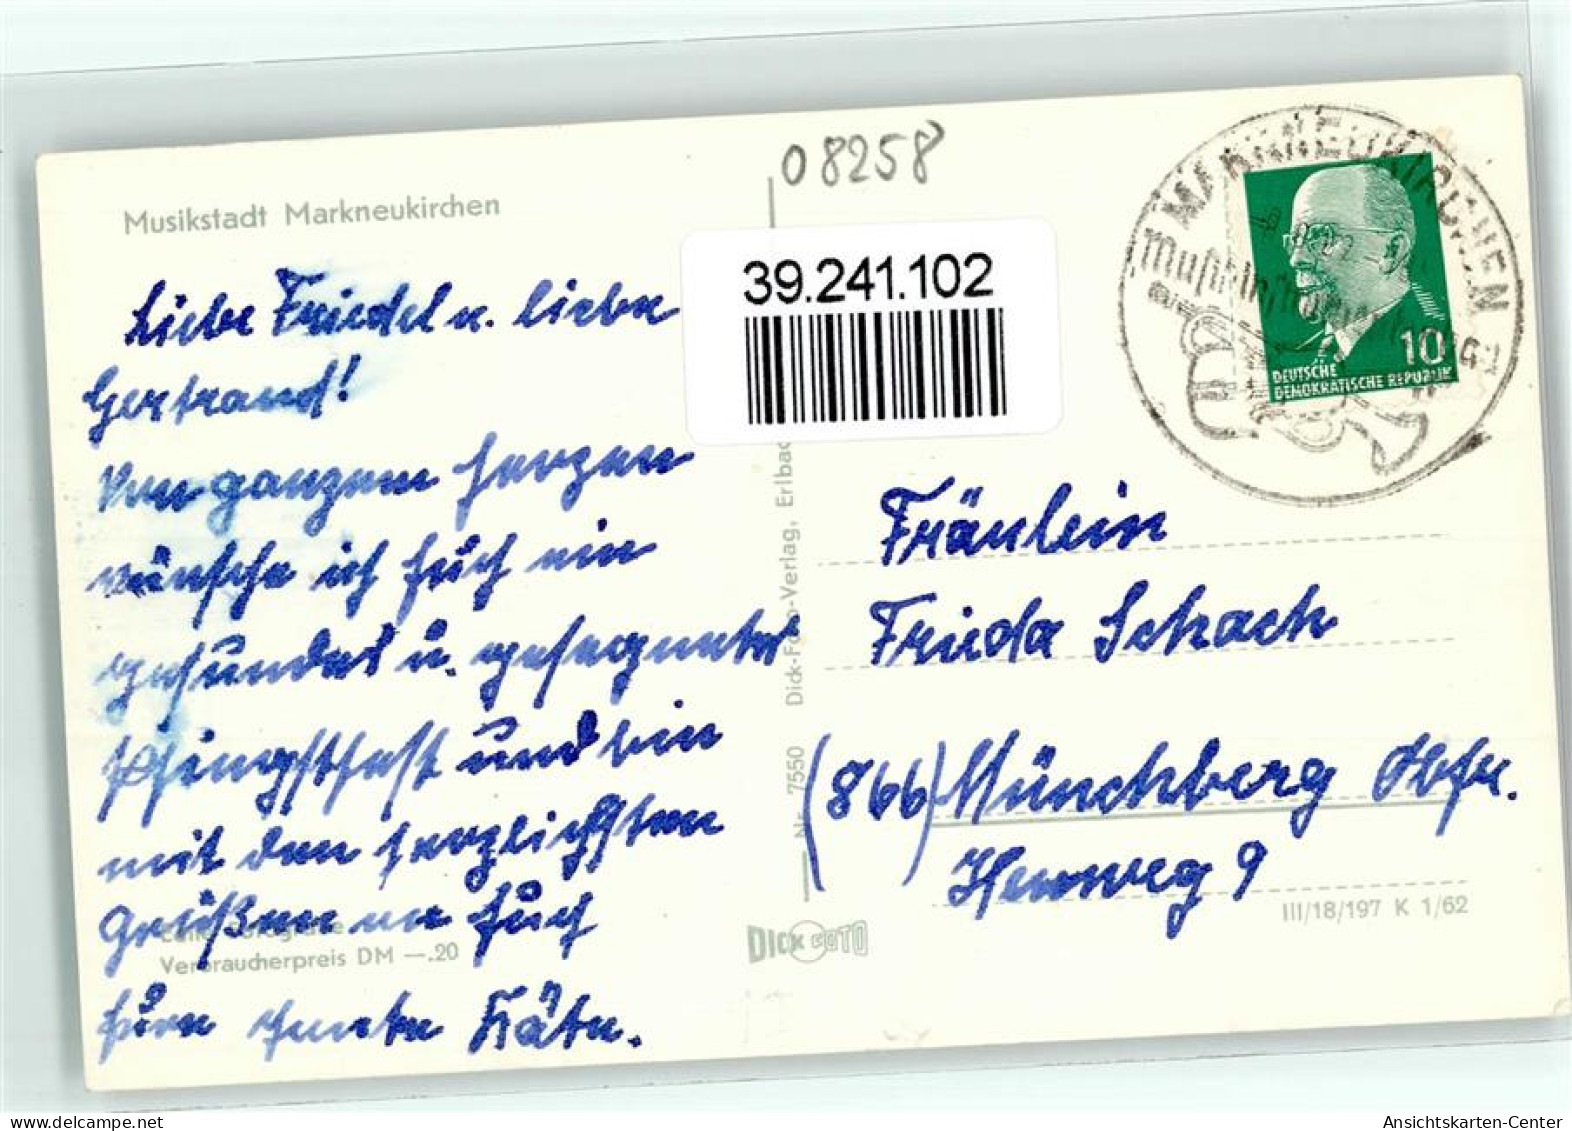 08258
Musikstadt Markneukirchen
39.241.102
Liebe Friedel u. liebe
Gertraud!
Von ganzem Herzen
wünsche ich Euch ein
gesundes u. gesegnetes
Pfingstfest und bin
mit den herzlichsten
Grüßen an Euch
Eure Käte.
Echte Fotografie
Verbraucherpreis DM —.20
Nr. 7550 Dick-Foto-Verlag, Erlbac
DICK FOTO
MARKNEUKIRCHEN
10
DEUTSCHE
DEMOKRATISCHE REPUBLIK
Fräulein
Frieda Schack
(866) Münchberg Obfr.
9
III/18/197 K 1/62
Ansichtskarten-Center